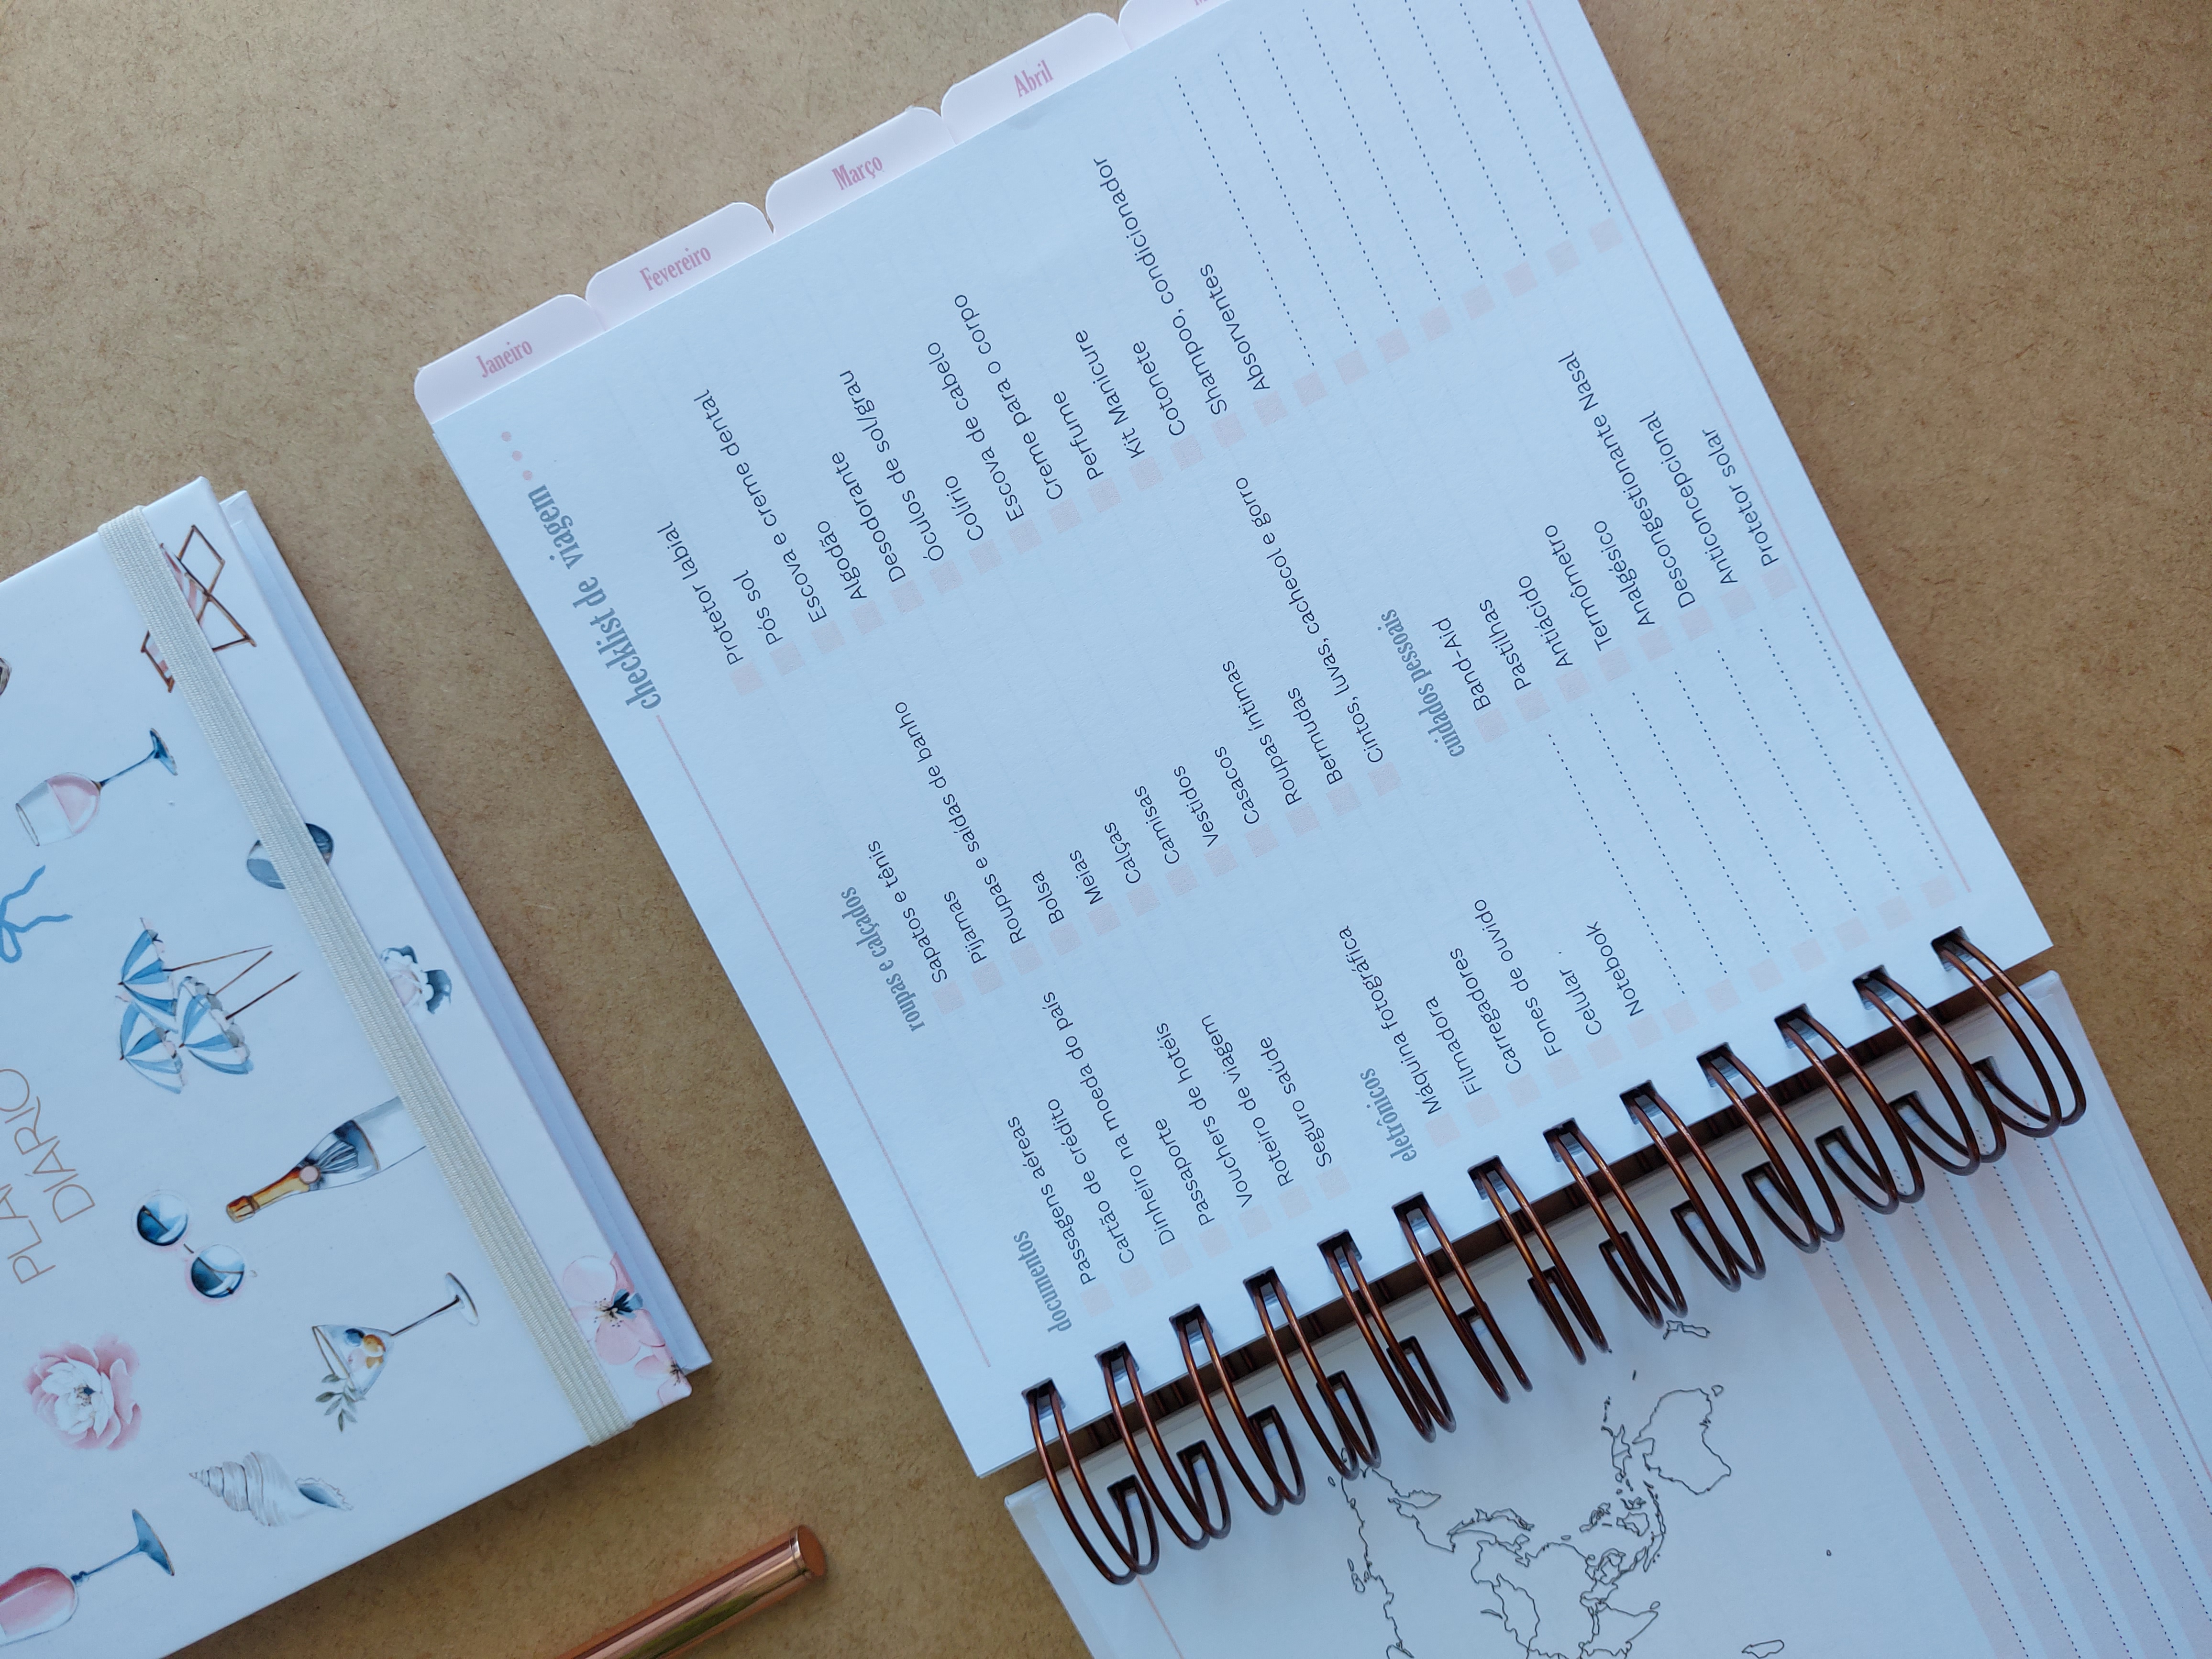 PLA
DIÁRIO
Janeiro
Fevereiro
Março
Abril
checklist de viagem
documentos
Passagens aéreas
Cartão de crédito
Dinheiro na moeda do país
Passaporte
Vouchers de hotéis
Roteiro de viagem
Seguro saúde
eletrônicos
Máquina fotográfica
Filmadora
Carregadores
Fones de ouvido
Celular
Notebook
roupas e calçados
Sapatos e tênis
Pijamas
Roupas e saídas de banho
Bolsa
Meias
Calças
Camisas
Vestidos
Casacos
Roupas íntimas
Bermudas
Cintos, luvas, cachecol e gorro
cuidados pessoais
Band-Aid
Pastilhas
Antiácido
Termômetro
Analgésico
Descongestionante Nasal
Anticoncepcional
Protetor solar
Protetor labial
Pós sol
Escova e creme dental
Algodão
Desodorante
Óculos de sol/grau
Colírio
Escova de cabelo
Creme para o corpo
Perfume
Kit Manicure
Cotonete
Shampoo, condicionador
Absorventes